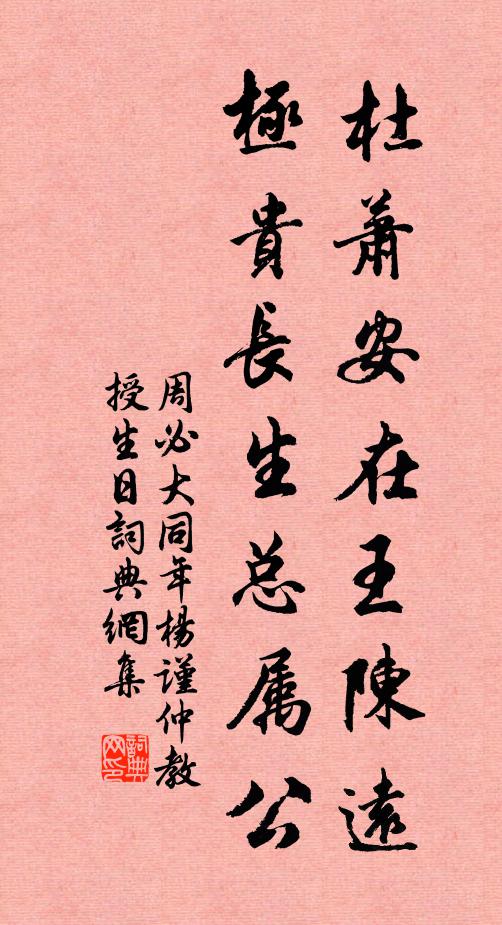 杜蕭安在王陳遠
極貴長生总属公
周必大同年楊謹仲教
授生日詞典網集
詞典网印